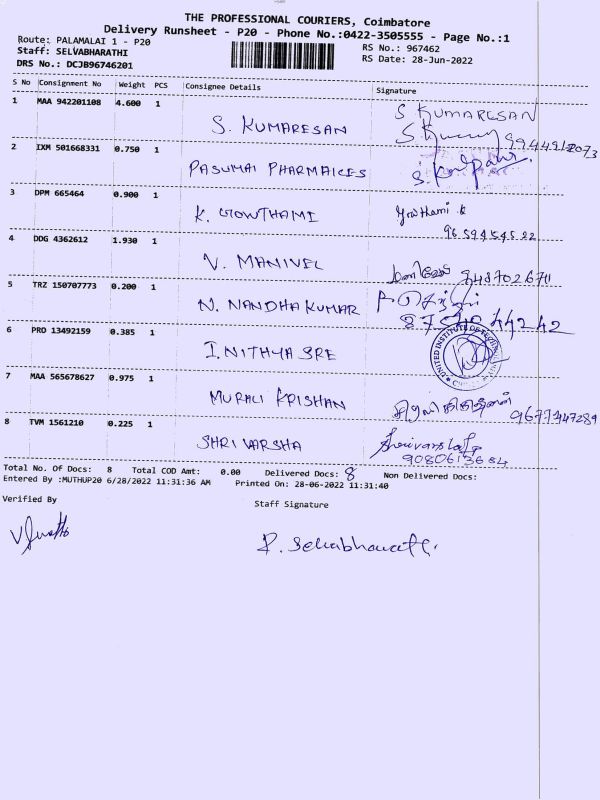 THE PROFESSIONAL COURIERS, Coimbatore
Delivery Runsheet - P20 - Phone No.:0422-3505555 - Page No.:1
Route: PALAMALAI 1 - P20
RS No.: 967462
Staff: SELVABHARATHI
RS Date: 28-Jun-2022
DRS No.: DCJB96746201
S No Consignment No Weight PCS Consignee Details Signature
1 MAA 942201108 4.600 1 S. KUMARESAN S KUMARESAN
2 IXM 501668331 0.750 1 PASUMAI PHARMAICES
3 DPM 665464 0.900 1 K. GOWTHAMI Gowthami k
4 DDG 4362612 1.930 1 V. MANIVEL
5 TRZ 150707773 0.200 1 N. NANDHAKUMAR
6 PRO 13492159 0.385 1 I. NITHYA SRE
UNITED INSTITUTE OF
7 MAA 565678627 0.975 1 MURALI KRISHAN
8 TVM 1561210 0.225 1 SHRIVARSHA
9080613684
Total No. Of Docs: 8 Total COD Amt: 0.00 Delivered Docs: 8 Non Delivered Docs:
Entered By :MUTHUP20 6/28/2022 11:31:36 AM Printed On: 28-06-2022 11:31:40
Verified By Staff Signature